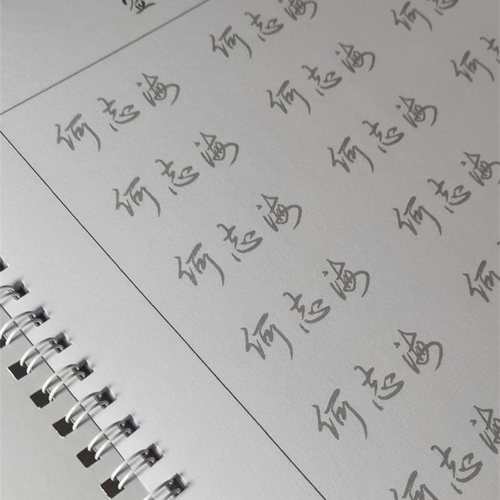 何志海 何志海
何志海 何志海 何志海
何志海 何志海 何志
何志海 何志海
何志海 何
何志海